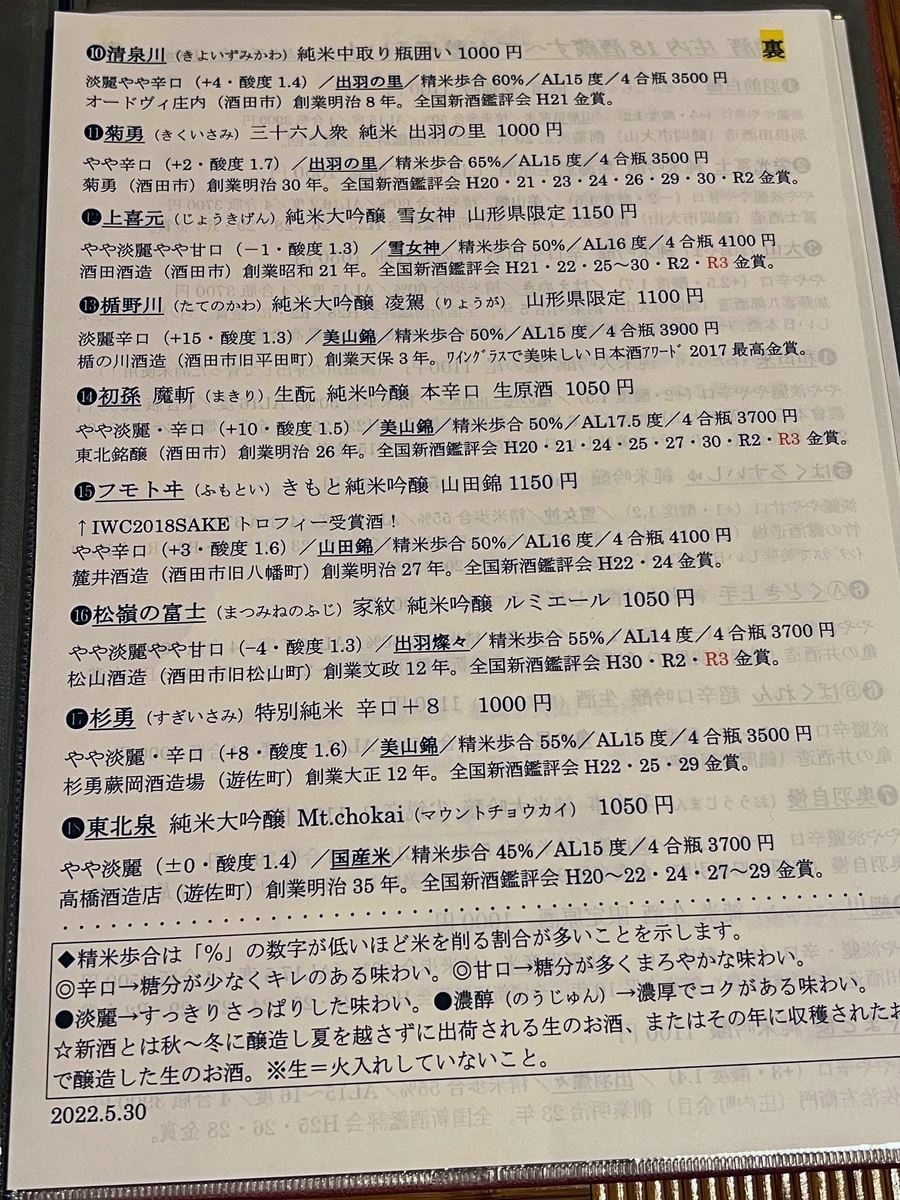 裏
❿清泉川（きよいずみかわ）純米中取り瓶囲い 1000 円
淡麗やや辛口（+4・酸度 1.4）／出羽の里／精米歩合 60%／AL15 度／4 合瓶 3500 円
オードヴィ庄内（酒田市）創業明治 8 年。全国新酒鑑評会 H21 金賞。
⓫菊勇（きくいさみ）三十六人衆 純米 出羽の里 1000 円
やや辛口（+2・酸度 1.7）／出羽の里／精米歩合 65%／AL15 度／4 合瓶 3500 円
菊勇（酒田市）創業明治 30 年。全国新酒鑑評会 H20・21・23・24・26・29・30・R2 金賞。
⓬上喜元（じょうきげん）純米大吟醸 雪女神 山形県限定 1150 円
やや淡麗やや甘口（－1・酸度 1.3）／雪女神／精米歩合 50%／AL16 度／4 合瓶 4100 円
酒田酒造（酒田市）創業昭和 21 年。全国新酒鑑評会 H21・22・25～30・R2・R3 金賞。
⓭楯野川（たてのかわ）純米大吟醸 凌駕（りょうが） 山形県限定 1100 円
淡麗辛口（+15・酸度 1.3）／美山錦／精米歩合 50%／AL15 度／4 合瓶 3900 円
楯の川酒造（酒田市旧平田町）創業天保 3 年。ﾜｲﾝｸﾞﾗｽで美味しい日本酒ｱﾜｰﾄﾞ 2017 最高金賞。
⓮初孫 魔斬（まきり）生酛 純米吟醸 本辛口 生原酒 1050 円
やや淡麗・辛口（+10・酸度 1.5）／美山錦／精米歩合 50%／AL17.5 度／4 合瓶 3700 円
東北銘醸（酒田市）創業明治 26 年。全国新酒鑑評会 H20・21・24・25・27・30・R2・R3 金賞。
⓯フモトヰ（ふもとい）きもと純米吟醸 山田錦 1150 円
↑IWC2018SAKE トロフィー受賞酒！
やや辛口（+3・酸度 1.6）／山田錦／精米歩合 50%／AL16 度／4 合瓶 4100 円
麓井酒造（酒田市旧八幡町）創業明治 27 年。全国新酒鑑評会 H22・24 金賞。
⓰松嶺の富士（まつみねのふじ）家紋 純米吟醸 ルミエール 1050 円
やや淡麗やや甘口（−4・酸度 1.3）／出羽燦々／精米歩合 55%／AL14 度／4 合瓶 3700 円
松山酒造（酒田市旧松山町）創業文政 12 年。全国新酒鑑評会 H30・R2・R3 金賞。
⓱杉勇（すぎいさみ）特別純米 辛口＋8 1000 円
やや淡麗・辛口（+8・酸度 1.6）／美山錦／精米歩合 55%／AL15 度／4 合瓶 3500 円
杉勇蕨岡酒造場（遊佐町）創業大正 12 年。全国新酒鑑評会 H22・25・29 金賞。
⓲東北泉 純米大吟醸 Mt.chokai（マウントチョウカイ） 1050 円
やや淡麗（±0・酸度 1.4）／国産米／精米歩合 45%／AL15 度／4 合瓶 3700 円
高橋酒造店（遊佐町）創業明治 35 年。全国新酒鑑評会 H20～22・24・27～29 金賞。
◆精米歩合は「%」の数字が低いほど米を削る割合が多いことを示します。
◎辛口→糖分が少なくキレのある味わい。◎甘口→糖分が多くまろやかな味わい。
●淡麗→すっきりさっぱりした味わい。●濃醇（のうじゅん）→濃厚でコクがある味わい。
☆新酒とは秋～冬に醸造し夏を越さずに出荷される生のお酒、またはその年に収穫されたお
で醸造した生のお酒。※生＝火入れしていないこと。
2022.5.30